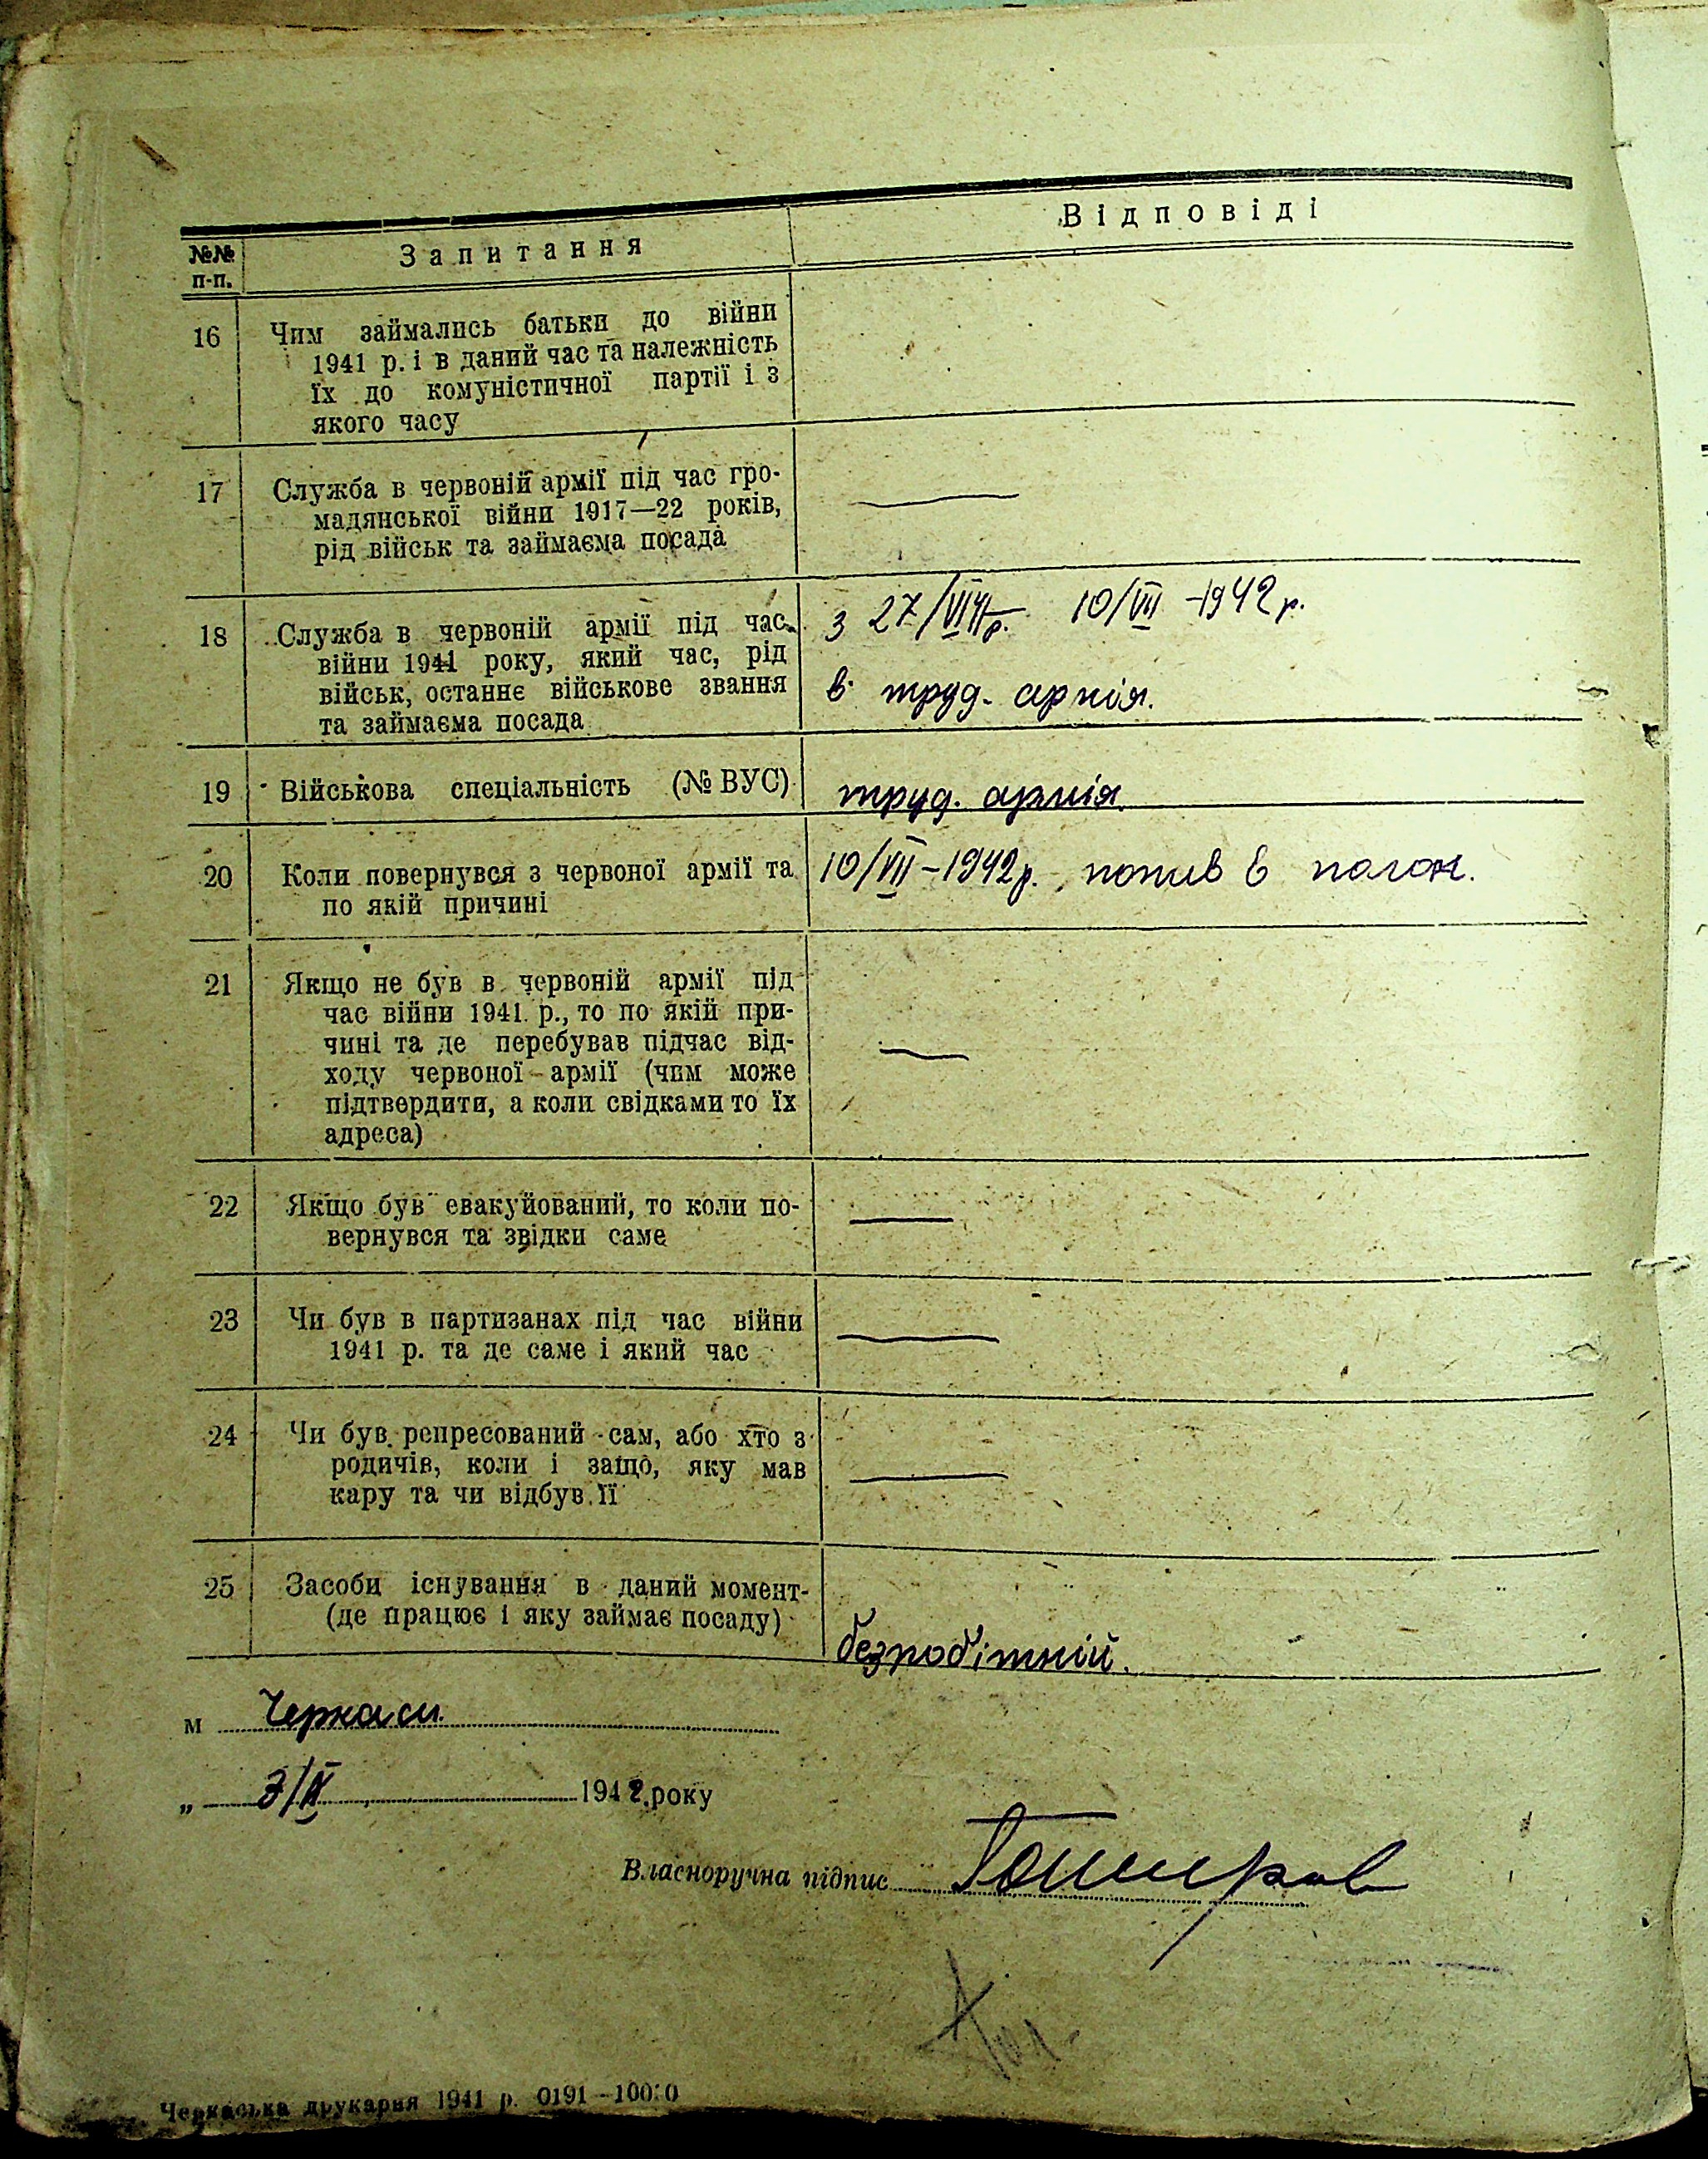 №№ п-п.
Запитання
Відповіді
16
Чим займались батьки до війни
1941 р. і в даний час та належність
їх до комуністичної партії і з
якого часу
17
Служба в червоній армії під час гро-
мадянської війни 1917—22 років,
рід військ та займаєма посада
18
Служба в червоній армії під час
війни 1941 року, який час, рід
військ, останнє військове звання
та займаєма посада
з 27/VIII 10/VII -1942 р.
в труд. армія.
19
Військова спеціальність (№ ВУС)
труд. армія
20
Коли повернувся з червоної армії та
по якій причині
10/VII-1942 р., попив в полон.
21
Якщо не був в червоній армії під
час війни 1941 р., то по якій при-
чині та де перебував підчас від-
ходу червоної армії (чим може
підтвердити, а коли свідками то їх
адреса)
22
Якщо був евакуйований, то коли по-
вернувся та звідки саме
23
Чи був в партизанах під час війни
1941 р. та де саме і який час
24
Чи був репресований сам, або хто з
родичів, коли і защо, яку мав
кару та чи відбув її
25
Засоби існування в даний момент-
(де працює і яку займає посаду)
безробітній.
м Черкаси
„ 3/IX 1942 року
Власноручна підпис
Черкаська друкарня 1941 р. 0191—10000